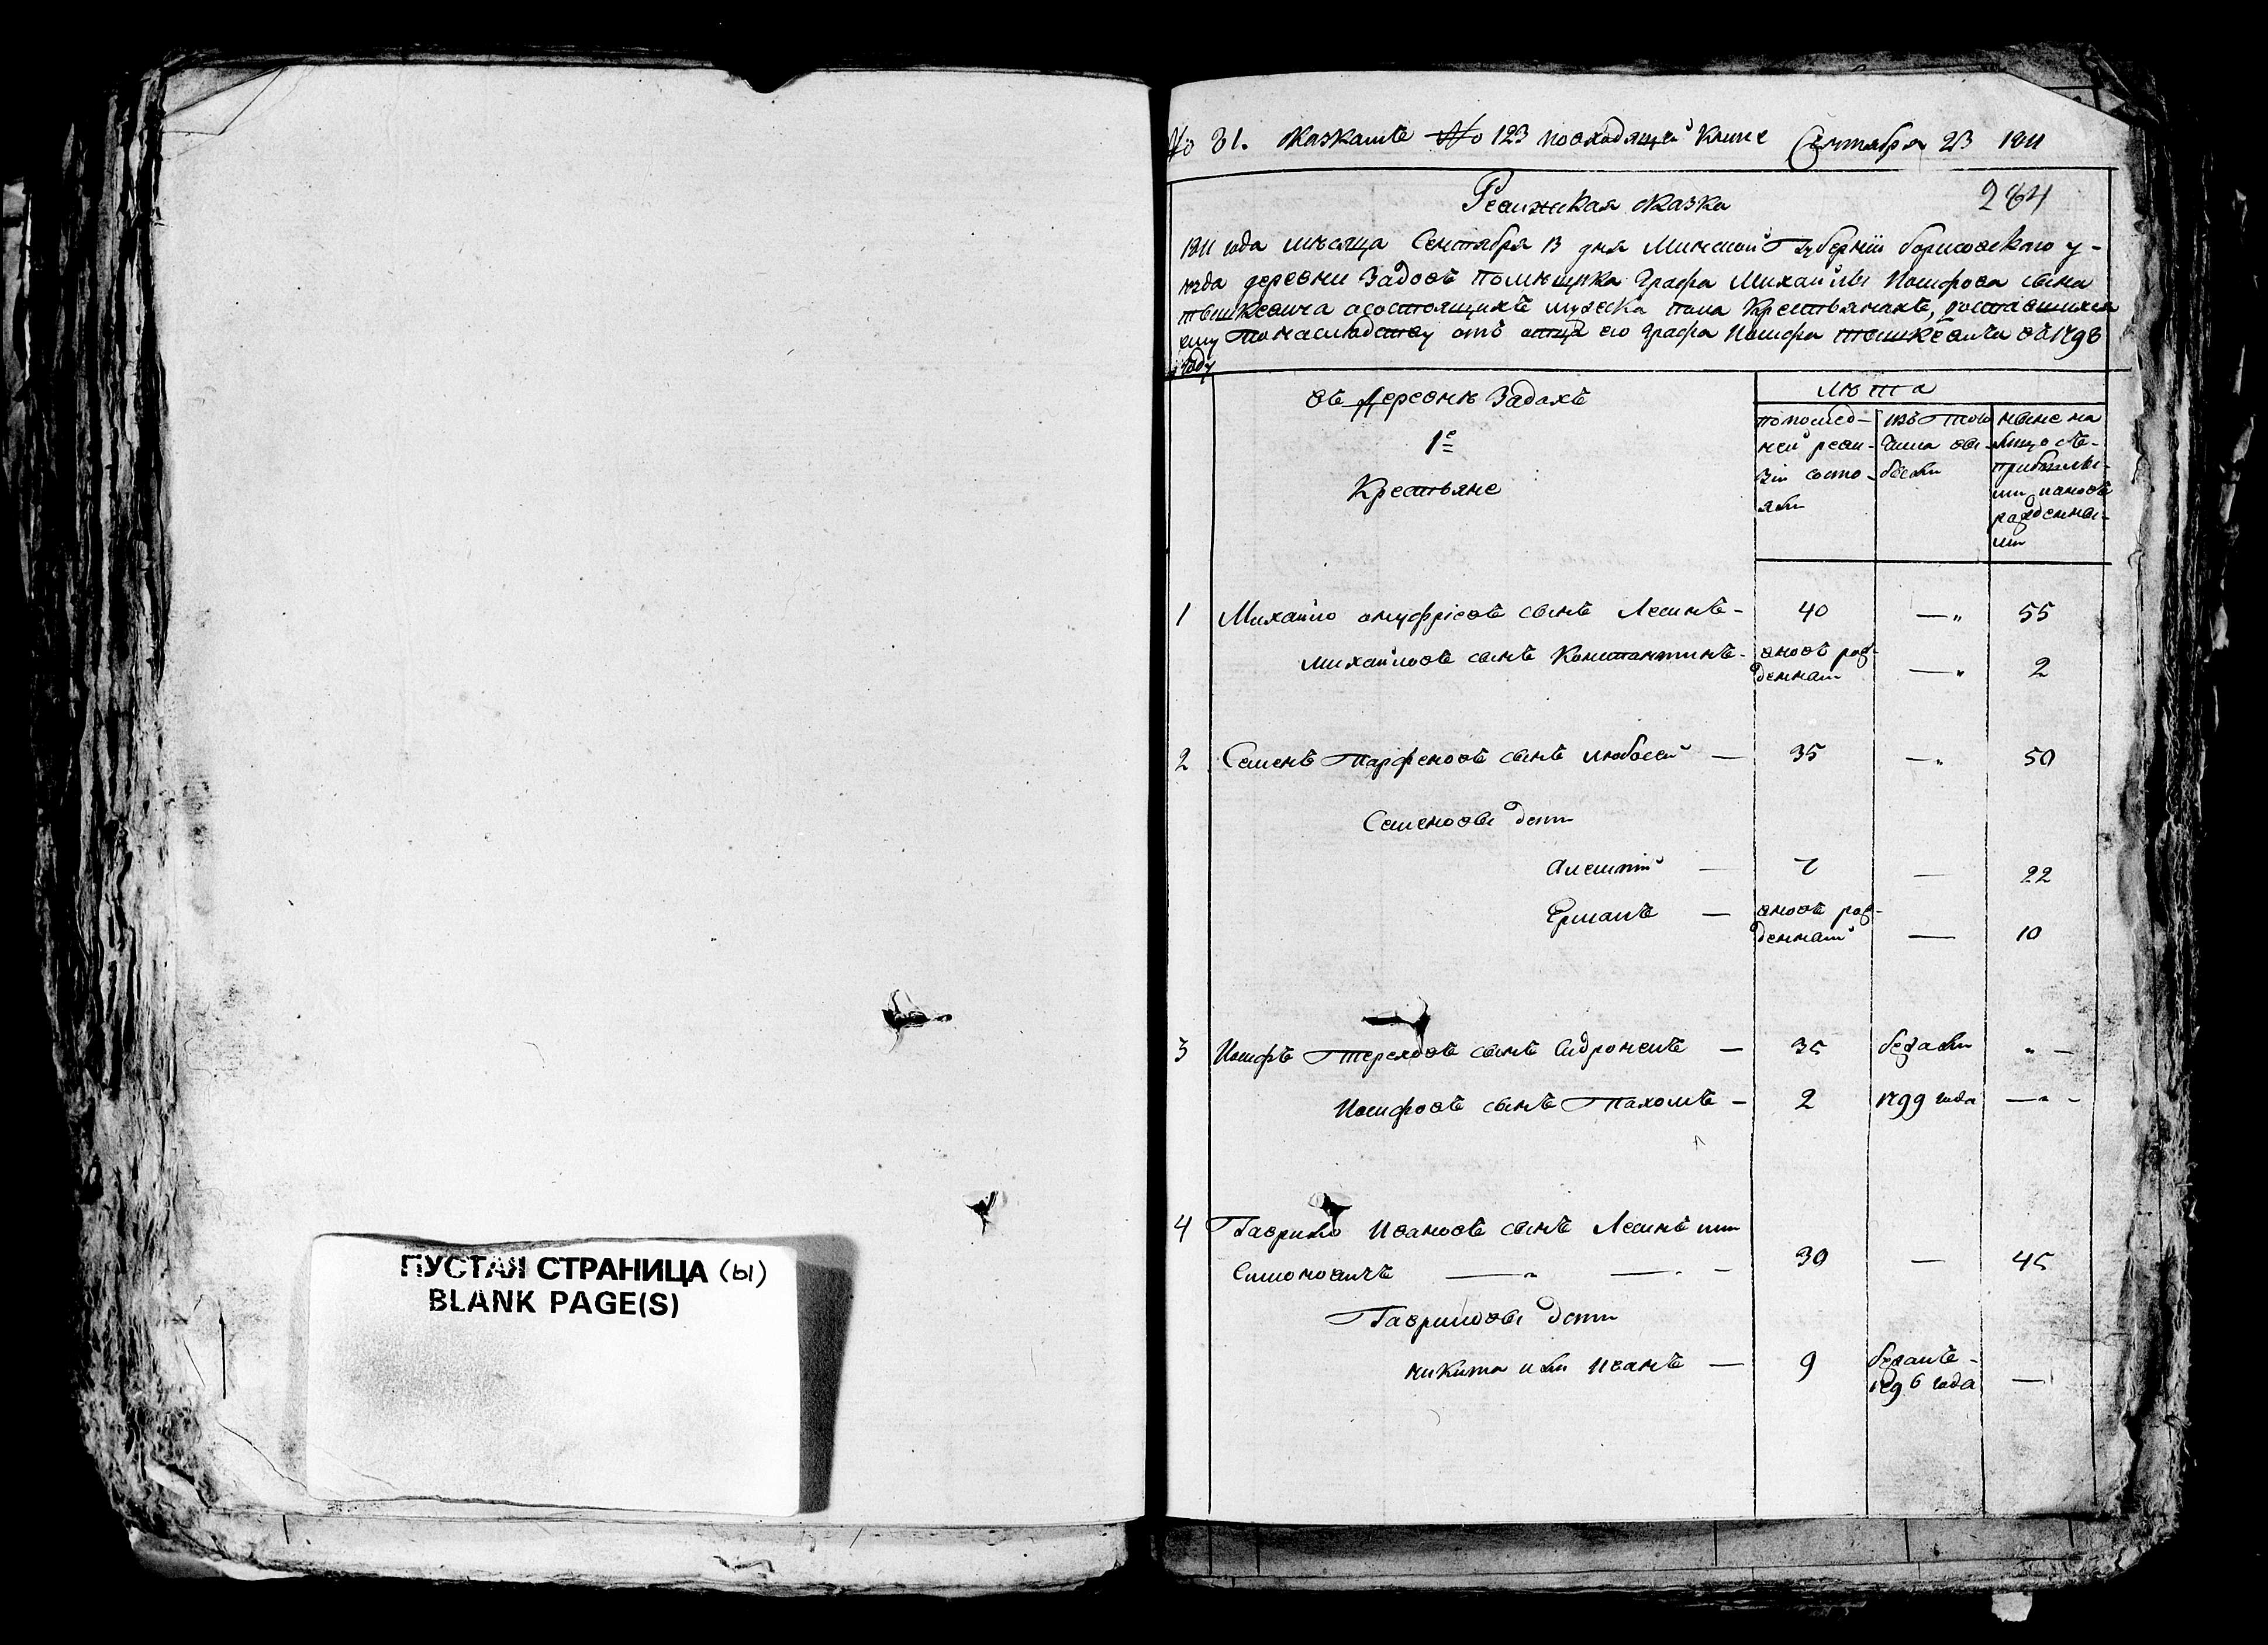 ПУСТАЯ СТРАНИЦА (ы)
BLANK PAGE(S)
№ 31. сказкамъ № 123 повходящей книге Сентября 23 1811
Ревижская сказка 284
1811 года месяца Сентября 13 дня Минской Губернии борисовского у-
езда деревни Задовъ помещика Графа Михайлы Иосифова сына
тышкевича осостоящихъ мужска пола Крестьянахъ, доставшихся
ему понаследству отъ отца его Графа Иосифа тышкевича въ 1798
году
въ деревне Задахъ
1е
Крестьяне
лета
попослед-
ней реви-
зіи состо-
яли
изъ того
числа вы-
были
ныне на
лицо съ-
прибылы-
ми иановъ
рожденны-
ми
1 Михайло онуфріевъ сынъ Левинъ - 40 — 55
Михайловъ сынъ Константинъ - вновь рож-
денный — 2
2 Семенъ Парфеновъ сынъ — 35 — 50
Семеновы дети
— 7 — 22
Ермалъ — вновь рож-
денный — 10
3 Иосифъ Тереховъ сынъ — 35 бежали —
Иосифовъ сынъ Пахомъ — 2 1799 года —
4 Гаврило Ивановъ сынъ Левинъ или
Симоновичъ — — 30 — 45
Гавриловы дети
никита или Иванъ — 9 бежалъ -
1796 года —